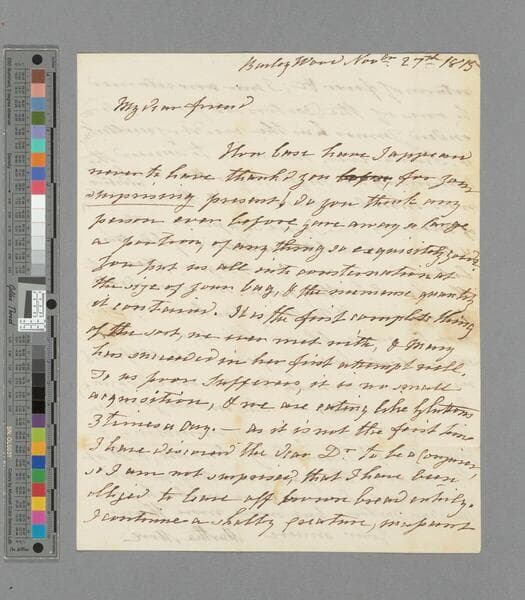 Barley Wood Novbr 27th 1815
My dear friend
How base have I appeard
never to have thank'd you before, for your
surprising present, do you think any
person ever before, gave away so large
a portion, of any thing so exquisitely good?
You put us all into consternation at
the size of your bag, & the immense quantity
it contained. It is the first complete thing
of the sort, we ever met with, & Mary
has succeeded in her first attempt well.
To us poor sufferers, it is no small
acquisition, & we are eating like Gluttons
3 times a day. — as it is not the first time
I have discovered the dear Dr. to be a Conjurer,
so I am not surprised, that I have been
obliged to leave off brown bread entirely.
I continue a shabby creature, in point